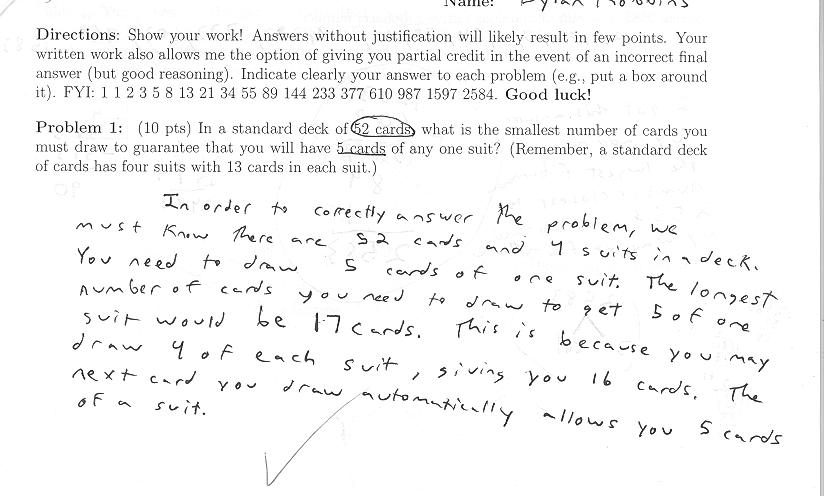 Name:
Directions: Show your work! Answers without justification will likely result in few points. Your
written work also allows me the option of giving you partial credit in the event of an incorrect final
answer (but good reasoning). Indicate clearly your answer to each problem (e.g., put a box around
it). FYI: 1 1 2 3 5 8 13 21 34 55 89 144 233 377 610 987 1597 2584. Good luck!
Problem 1: (10 pts) In a standard deck of 52 cards, what is the smallest number of cards you
must draw to guarantee that you will have 5 cards of any one suit? (Remember, a standard deck
of cards has four suits with 13 cards in each suit.)
In order to correctly answer the problem, we
must know there are 52 cards and 4 suits in a deck.
You need to draw 5 cards of one suit. The longest
number of cards you need to draw to get 5 of one
suit would be 17 cards. This is because you may
draw 4 of each suit, giving you 16 cards. The
next card you draw automatically allows you 5 cards
of a suit.